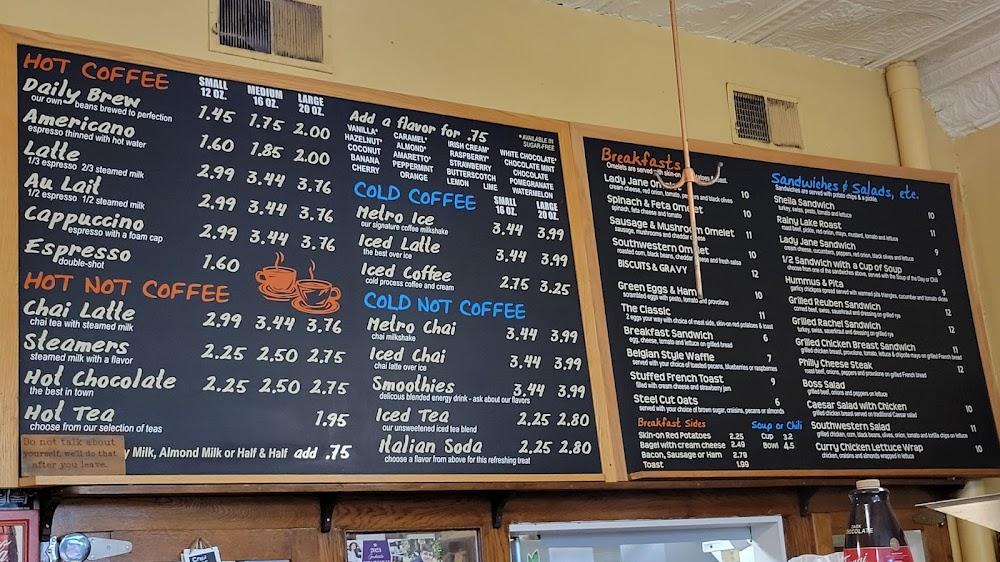 HOT COFFEE SMALL 12 OZ. MEDIUM 16 OZ. LARGE 20 OZ.
Daily Brew 1.45 1.75 2.00
our own beans brewed to perfection
Americano 1.60 1.85 2.00
espresso thinned with hot water
Latte 2.99 3.44 3.76
1/3 espresso 2/3 steamed milk
Au Lait 2.99 3.44 3.76
1/2 espresso 1/2 steamed milk
Cappuccino 2.99 3.44 3.76
espresso with a foam cap
Espresso 1.60
double-shot
HOT NOT COFFEE
Chai Latte 2.99 3.44 3.76
chai tea with steamed milk
Steamers 2.25 2.50 2.75
steamed milk with a flavor
Hot Chocolate 2.25 2.50 2.75
the best in town
Hot Tea 1.95
choose from our selection of teas
Do not talk about
yourself, we'll do that
after you leave.
Milk, Almond Milk or Half & Half add .75
Add a flavor for .75
*AVAILABLE IN
SUGAR-FREE
VANILLA* CARAMEL* IRISH CREAM* WHITE CHOCOLATE*
HAZELNUT* ALMOND* RASPBERRY* CHOCOLATE MINT
COCONUT AMARETTO* STRAWBERRY CHOCOLATE
BANANA PEPPERMINT BUTTERSCOTCH POMEGRANATE
CHERRY ORANGE LEMON LIME WATERMELON
COLD COFFEE SMALL 16 OZ. LARGE 20 OZ.
Metro Ice 3.44 3.99
our signature coffee milkshake
Iced Latte 3.44 3.99
the best over ice
Iced Coffee 2.75 3.25
cold process coffee and cream
COLD NOT COFFEE
Metro Chai 3.44 3.99
chai milkshake
Iced Chai 3.44 3.99
chai latte over ice
Smoothies 3.44 3.99
delicous blended energy drink - ask about our flavors
Iced Tea 2.25 2.80
our unsweetened iced tea blend
Italian Soda 2.25 2.80
choose a flavor from above for this refreshing treat
Breakfasts
Omelets are served with skin-on
Lady Jane 10
cream cheese, red onion, tomato, and black olives
Spinach & Feta Omelet 10
spinach, feta cheese and tomato
Sausage & Mushroom Omelet 11
sausage, mushrooms and cheddar
Southwestern Omelet 12
roasted corn, black beans, cheddar and fresh salsa
BISCUITS & GRAVY 12
Green Eggs & Ham 10
scrambled eggs with pesto, tomato and provolone
The Classic 11
2 eggs your way with choice of meat side, skin-on red potatoes & toast
Breakfast Sandwich 6
egg, cheese, tomato and lettuce on grilled bread
Belgian Style Waffle 7
served with your choice of toasted pecans, blueberries or raspberries
Stuffed French Toast 9
filled with cream cheese and strawberry jam
Steel Cut Oats 6
served with your choice of brown sugar, craisins, pecans or almonds
Breakfast Sides
Skin-on Red Potatoes 2.25
Bagel with cream cheese 2.49
Bacon, Sausage or Ham 2.79
Toast 1.99
Soup or Chili
Cup 3.2
Bowl 4.5
Sandwiches & Salads, etc.
Sandwiches are served with potato chips & a pickle.
Sheila Sandwich 10
turkey, swiss, pesto, tomato and lettuce
Rainy Lake Roast 11
roast beef, pickle, red onion, mayo, mustard, tomato and lettuce
Lady Jane Sandwich 9
cream cheese, cucumbers, peppers, red onion, black olives and lettuce
1/2 Sandwich with a Cup of Soup 8
choose from one of the sandwiches above, served with the Soup of the Day or Chili
Hummus & Pita 9
garlicy chickpea spread served with warmed pita triangles, cucumber and tomato slices
Grilled Reuben Sandwich 12
corned beef, swiss, sauerkraut and dressing on grilled rye
Grilled Rachel Sandwich 12
turkey, swiss, sauerkraut and dressing on grilled rye
Grilled Chicken Breast Sandwich 11
grilled chicken, provolone, tomato, lettuce & chipotle mayo on grilled French bread
Philly Cheese Steak 12
roast beef, onions, peppers and provolone on grilled French bread
Boss Salad
grilled chicken, peppers, onions, olives and tomato
Caesar Salad with Chicken 10
grilled chicken breast served on traditional Caesar salad
Southwestern Salad 11
grilled chicken, corn, black beans, olives, onion, tomato and tortilla chips on lettuce
Curry Chicken Lettuce Wrap 10
chicken, craisins and almonds wrapped in lettuce
DARK
CHOCOLATE